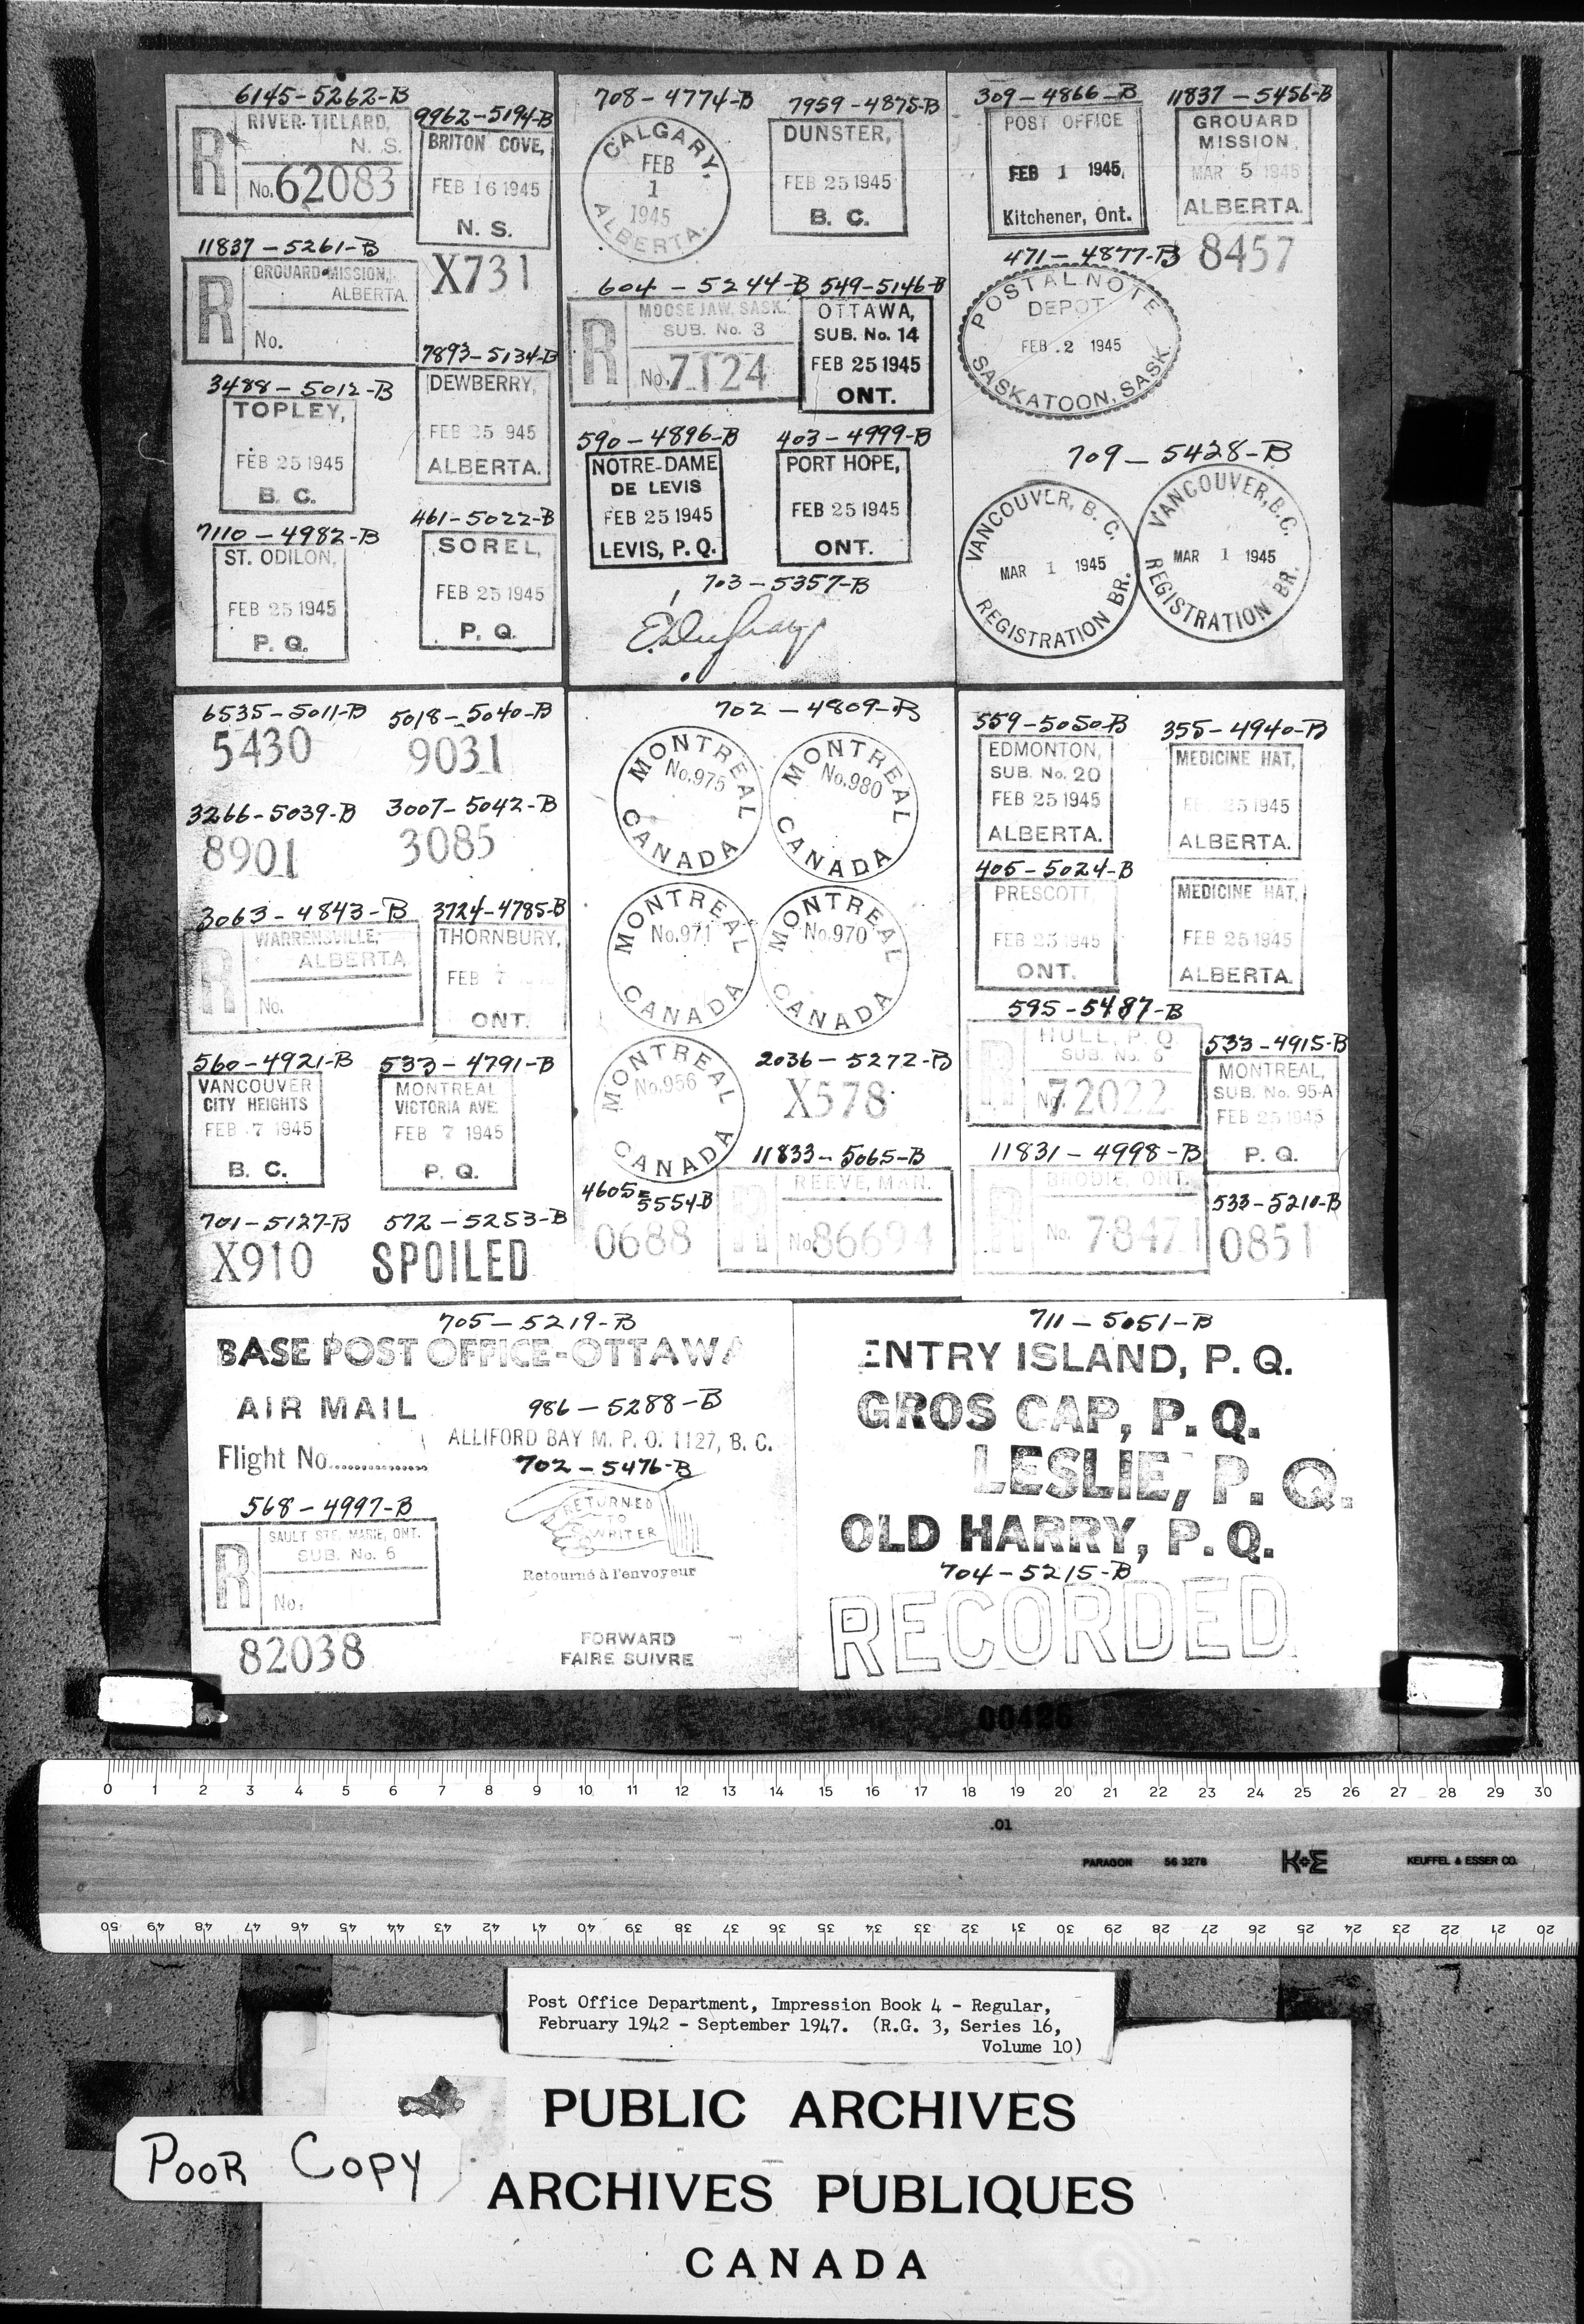 6145-5262-B
RIVER-TILLARD,
N. S.
R
No. 62083
9962-5194-B
BRITON COVE,
FEB 16 1945
N. S.
X731
11837-5261-B
GROUARD MISSION,
ALBERTA.
R
No.
7893-5134-B
DEWBERRY,
FEB 25 945
ALBERTA.
3488-5012-B
TOPLEY,
FEB 25 1945
B. C.
7110-4982-B
ST. ODILON,
FEB 25 1945
P. Q.
461-5022-B
SOREL,
FEB 25 1945
P. Q.
708-4774-B
CALGARY,
FEB
1
1945
ALBERTA.
7959-4875-B
DUNSTER,
FEB 25 1945
B. C.
604-5244-B
MOOSE JAW, SASK.
SUB. No. 3
R
No. 7124
549-5146-B
OTTAWA,
SUB. No. 14
FEB 25 1945
ONT.
590-4896-B
NOTRE-DAME
DE LEVIS
FEB 25 1945
LEVIS, P. Q.
403-4999-B
PORT HOPE,
FEB 25 1945
ONT.
703-5357-B
309-4866-B
POST OFFICE
FEB 1 1945
Kitchener, Ont.
11837-5456-B
GROUARD
MISSION,
MAR 5 1945
ALBERTA.
8457
471-4877-B
POSTAL NOTE
DEPOT
FEB. 2 1945
SASKATOON, SASK.
709-5428-B
VANCOUVER, B. C.
MAR 1 1945
REGISTRATION BR.
VANCOUVER, B.C.
MAR 1 1945
REGISTRATION BR.
6535-5011-B
5430
5018-5040-B
9031
3266-5039-B
8901
3007-5042-B
3085
3063-4843-B
WARRENSVILLE,
ALBERTA
R
No.
3724-4785-B
THORNBURY,
FEB 7
ONT.
560-4921-B
VANCOUVER
CITY HEIGHTS
FEB 7 1945
B. C.
533-4791-B
MONTREAL
VICTORIA AVE.
FEB 7 1945
P. Q.
701-5127-B
X910
572-5253-B
SPOILED
702-4809-B
MONTREAL
No.975
CANADA
MONTREAL
No.980
CANADA
MONTREAL
No.971
CANADA
MONTREAL
No.970
CANADA
MONTREAL
No.956
CANADA
2036-5272-B
X578
11833-5065-B
REEVE, MAN.
R
No. 86694
4605-5554-B
0688
559-5050-B
EDMONTON,
SUB. No. 20
FEB 25 1945
ALBERTA.
355-4940-B
MEDICINE HAT,
FE 25 1945
ALBERTA.
405-5024-B
PRESCOTT
FEB 25 1945
ONT.
MEDICINE HAT,
FEB 25 1945
ALBERTA.
595-5487-B
HULL, P. Q
SUB. No. 6
R
No. 72022
533-4915-B
MONTREAL,
SUB. No. 95-A
FEB 25 1945
P. Q.
11831-4998-B
BRODIE, ONT.
R
No. 78471
533-5210-B
0851
705-5219-B
BASE POST OFFICE-OTTAWA
AIR MAIL
Flight No...............
986-5288-B
ALLIFORD BAY M. P. O. 1127, B. C.
702-5476-B
RETURNED
TO
WRITER
Retourné à l'envoyeur
568-4997-B
SAULT STE. MARIE, ONT.
SUB. No. 6
R
No.
82038
FORWARD
FAIRE SUIVRE
711-5051-B
ENTRY ISLAND, P. Q.
GROS CAP, P. Q.
LESLIE, P. Q.
OLD HARRY, P. Q.
704-5215-B
RECORDED
00426
0 1 2 3 4 5 6 7 8 9 10 11 12 13 14 15 16 17 18 19 20 21 22 23 24 25 26 27 28 29 30
.01
PARAGON 56 3278 K+E KEUFFEL & ESSER CO.
50 49 48 47 46 45 44 43 42 41 40 39 38 37 36 35 34 33 32 31 30 29 28 27 26 25 24 23 22 21 20
Post Office Department, Impression Book 4 - Regular,
February 1942 - September 1947. (R.G. 3, Series 16,
Volume 10)
PUBLIC ARCHIVES
POOR COPY
ARCHIVES PUBLIQUES
CANADA